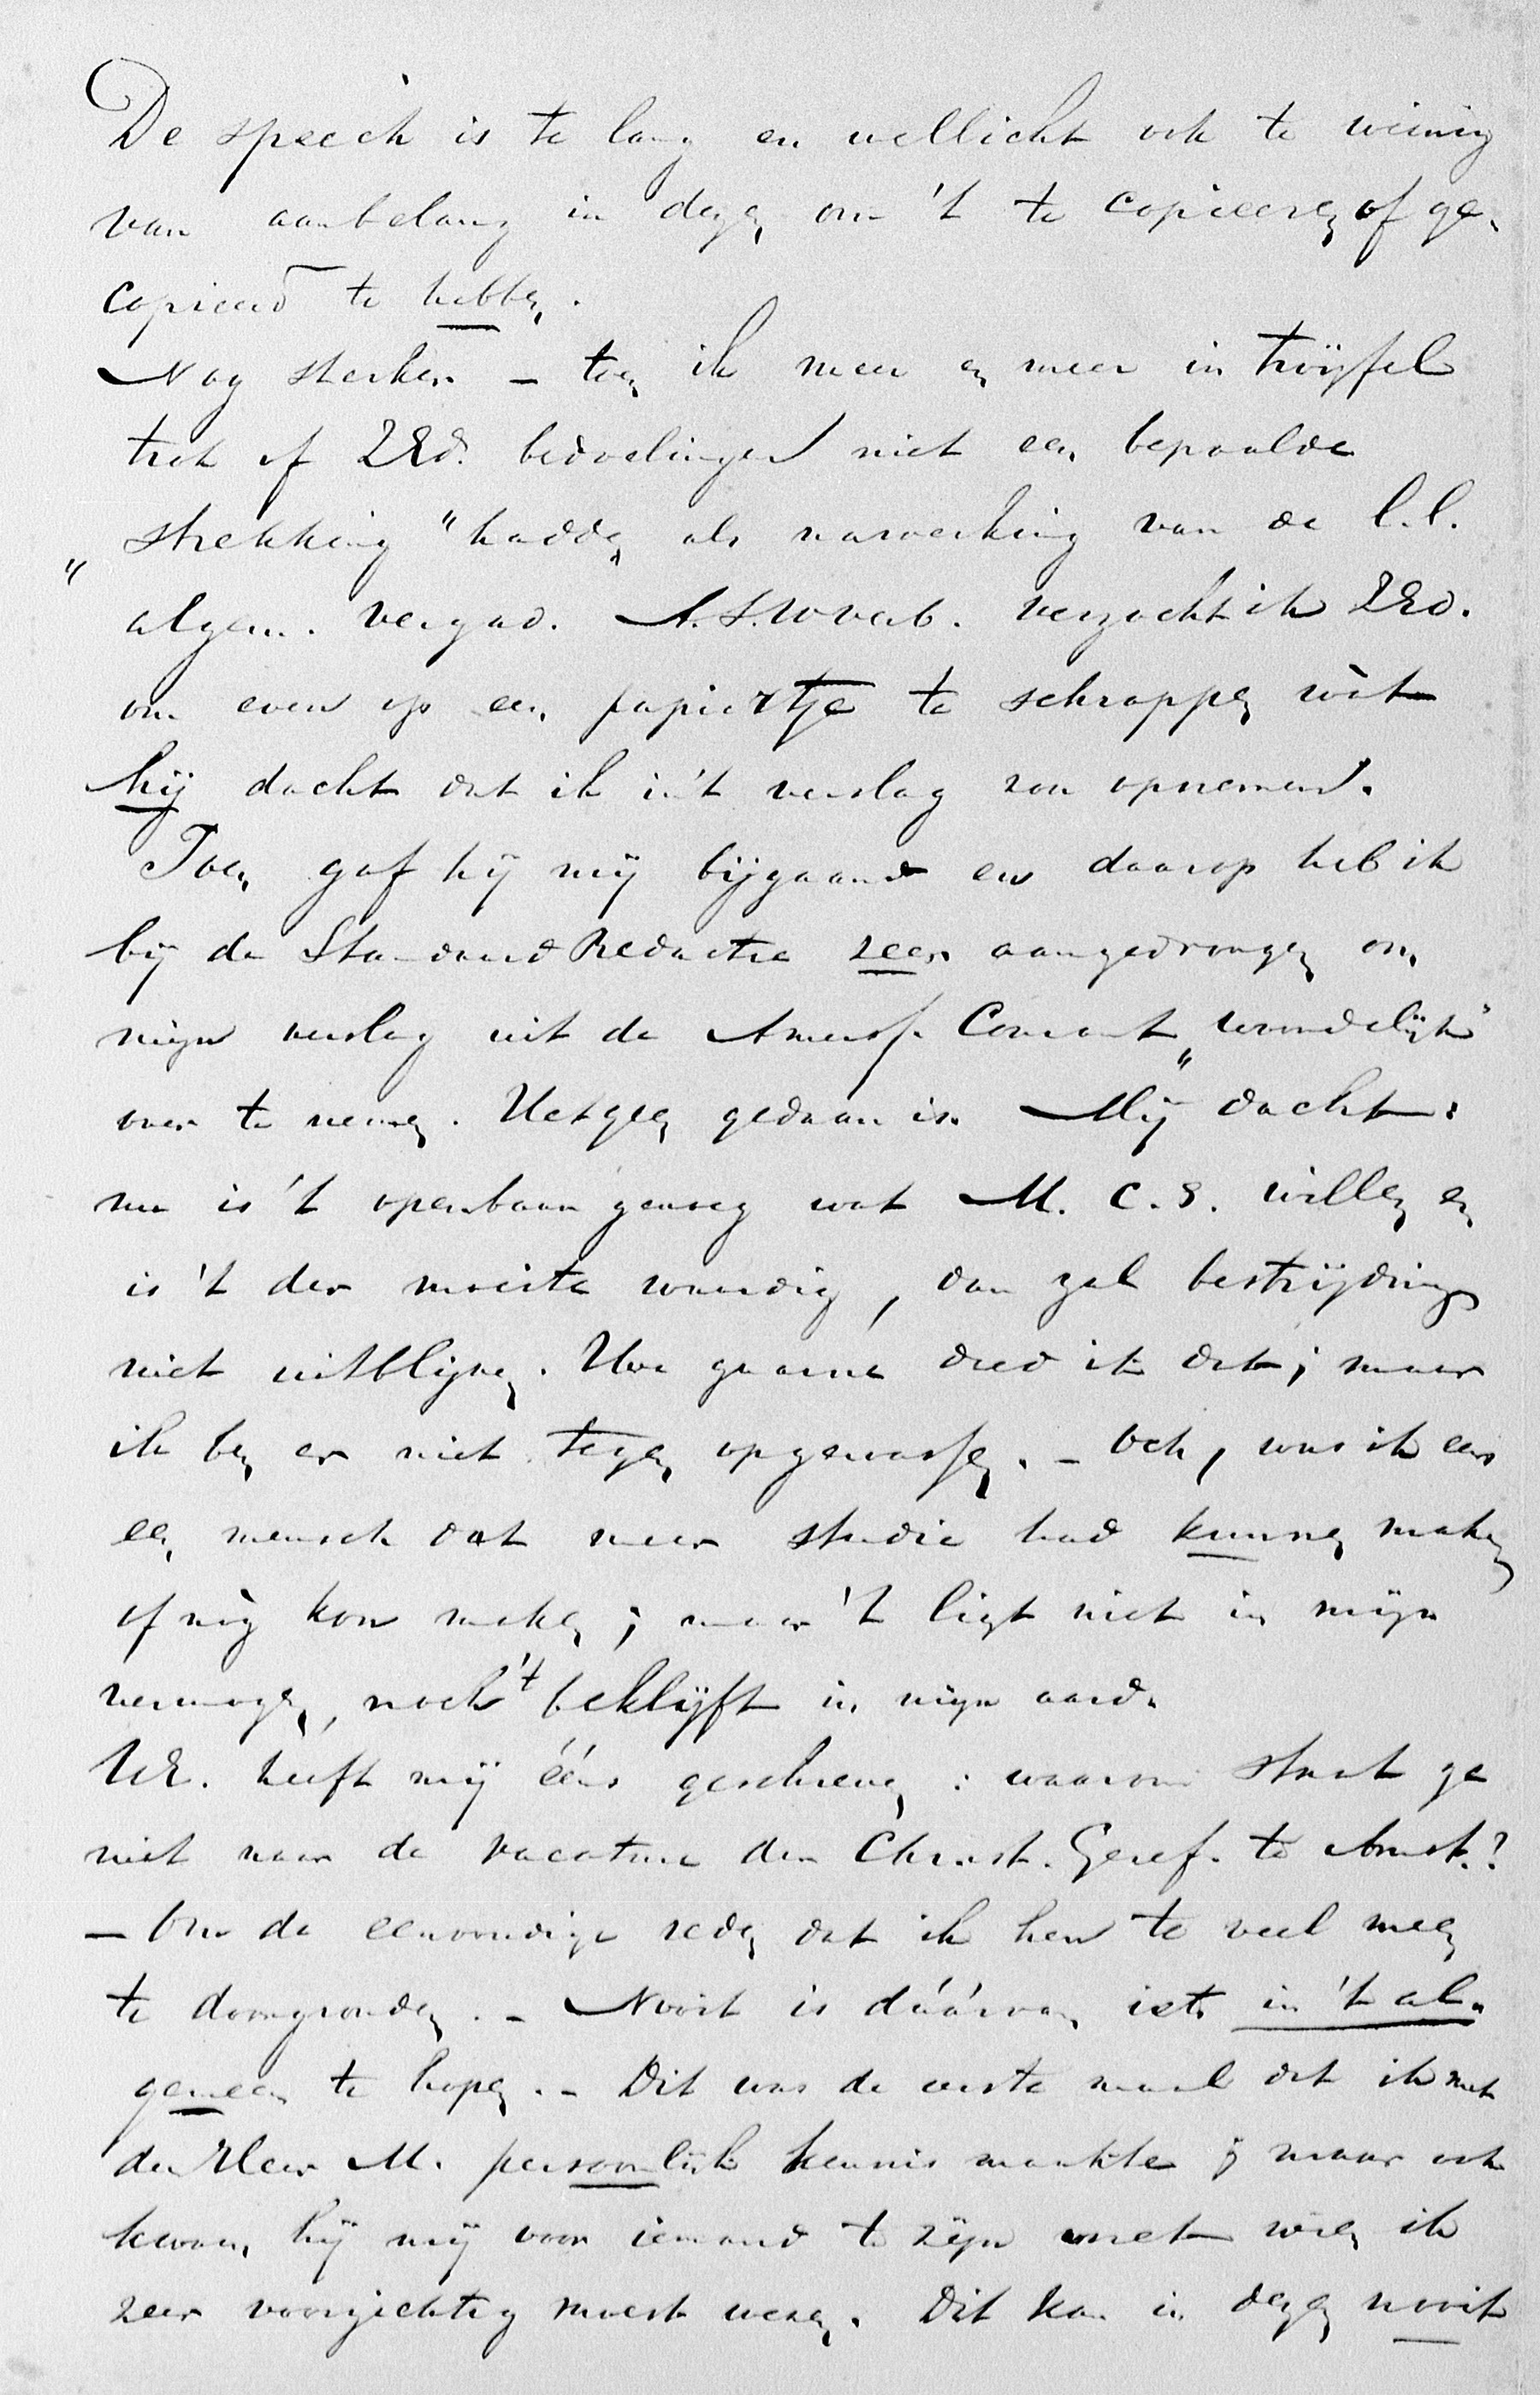 De speech is te lang en wellicht ook te weinig
van aanbelang in dezen om 't te copieeren of ge-
copieerd te hebben.
Nog sterker – toen ik meer en meer in twijfel
trok of ZEd. bedoelingen niet een bepaalde
„strekking" hadden als nawerking van de l.l.
algem. vergad. A.S.W verb. verzocht ik ZEd.
om even op een papiertje te schrappen wàt
hij dacht dat ik in 't verslag zou opnemen.
Toen gaf hij mij bijgaand en daarop heb ik
bij de Standaard Redactie zeer aangedrongen om
mijn verslag uit de Amersf. Courant „woordelijk"
over te nemen. Hetgeen gedaan is. Mij dacht:
nu is 't openbaar genoeg wat M. C.S. willen en
is 't der moeite waardig, dan zal bestrijding
niet uitblijven. Hoe gaarne deed ik dat; maar
ik ben er niet tegen opgewassen. – Och, was ik eens
een mensch dat meer studie had kunnen maken
of nòg kon maken; maar 't ligt niet in mijn
vermogen, noch 't beklijft in mijn aard.
UE. heeft mij ééns geschreven: waarom staat ge
niet naar de vacature der Christ. Geref. te Amst.?
– Om de eenvoudige reden dat ik hen te veel meen
te doorgronden. – Nooit is dáárvan iets in 't al-
gemeen te hopen. – Dit was de eerste maal dat ik met
den Heer M. persoonlijk kennis maakte; maar ook
kwam hij mij voor iemand te zijn met wien ik
zeer voorzichtig moest wezen. Dit kan in dezen nooit